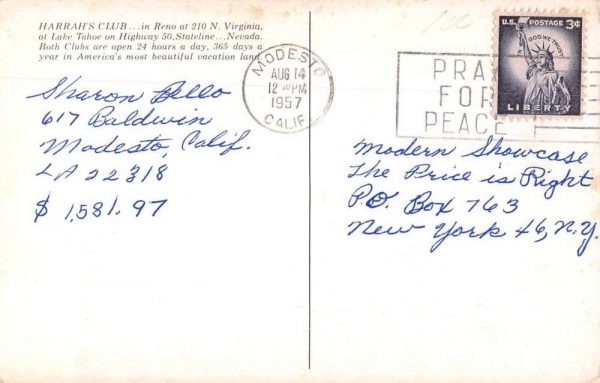 HARRAH'S CLUB...in Reno at 210 N. Virginia,
at Lake Tahoe on Highway 50, Stateline...Nevada.
Both Clubs are open 24 hours a day, 365 days a
year in America's most beautiful vacation land.
Sharon Bello
617 Baldwin
Modesto, Calif.
LA 22318
$ 1,581.97
MODESTO
AUG 14
12 PM
1957
CALIF.
PRAY
FOR
PEACE
U.S. POSTAGE 3¢
IN GOD WE TRUST
LIBERTY
Modern Showcase
The Price is Right
P.O. Box 763
New York 46, N.Y.